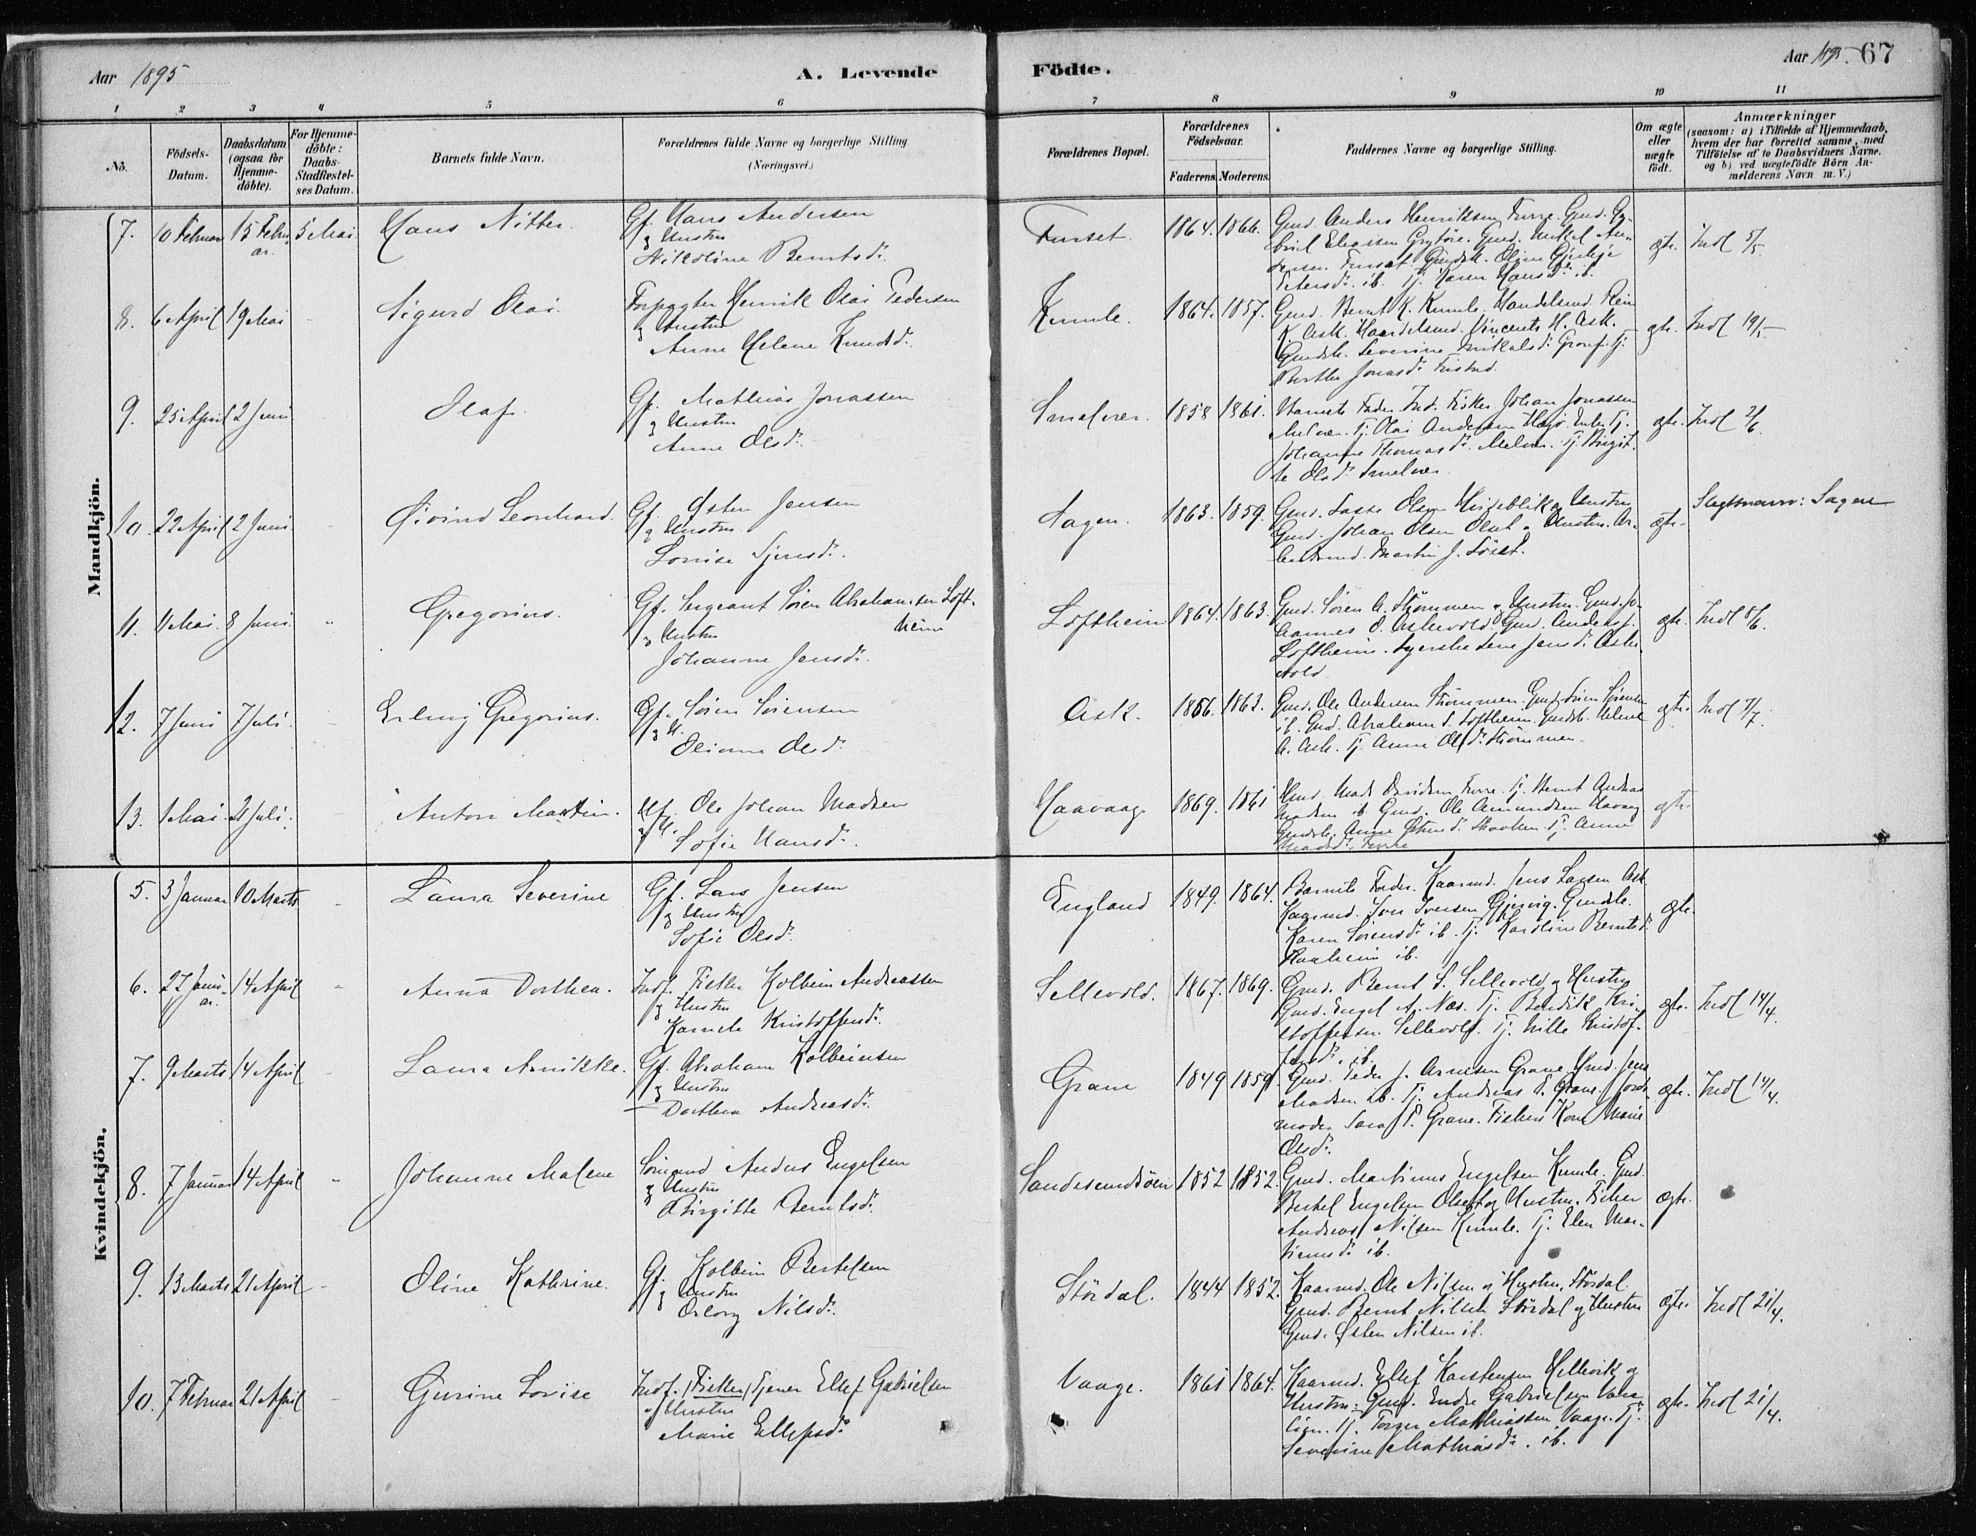 Aar 1895
A. Levende
Födte.
Aar 1895. 67
1 2 3 4 5 6 7 8 9 10 11
No.
Födsels-
Datum.
Daabsdatum
(ogsaa for
Hjemme-
döbte).
For Hjemme-
döbte:
Daabs-
Stadfestel-
ses Datum.
Barnets fulde Navn.
Forældrenes fulde Navne og borgerlige Stilling
(Næringsvei.)
Forældrenes Bopæl.
Forældrenes
Födselsaar.
Faderens. Moderens.
Faddernes Navne og borgerlige Stilling.
Om ægte
eller
uægte
födt.
Anmærkninger
(saasom: a) i Tilfælde af Hjemmedaab,
hvem der har forrettet samme, med
Tilföielse af to Daabsvidners Navne.
og b) ved uægtefödte Börn An-
melderens Navn m. V.)
Mandkjön.
7. 10 Februar 15 Febru-
ar. 5 Mai Hans Nitter. Gf. Hans Andersen
og Hustru
Nikoline Berntsdr.
Furset. 1864. 1866. Gmd. Anders Henriksen Furre. Gmd. Ga-
briel Eliassen Grytöre. Gmd. Mikel An-
dersen Furset. Gmdsk.
Petersdr. ib. Pj. Karen Hansdr. ib.
ægte. Indl 5/5
8. 6 April 19 Mai - Sigurd Olai. Forpagter Henrik Olai Pedersen
og Hustru
Anne Helene Knudsdr.
Kumle. 1864. 1857. Gmd. Bernt K. Kumle. Handelsmd. Rein
K. Ask. Handelsmd. Vincents H. Ask.
Gmdsk. Severine Mikalsdr.
Berthe Jonasdr.
ægte. Indl 19/5
9. 25 April 2 Juni Olaf. Gf. Mathias Jonassen
og Hustru
Anne Olsdr.
1858 1861. Barnets Fader. Ind. Fisker Johan Jonassen
Melvær. Pj. Olai Andersen
Johanne Thomasdr. Melvær. Pj. Birgit-
te Olsdr.
ægte. Indl 2/6.
10. 22 April 2 Juni. Øivind Leonhard. Gf. Østen Jensen
og Hustru
Lovise
Sagen. 1863. 1859. Gmd. Lasse Olsen og Hustru
Gmd. Johan Olsen og Hustru. Ar-
beidsmd. Martin J.
ægte. Slegtsnavn: Sagen
11. 11 Mai. 8 Juni. Gregorius. Gf. Sergeant Sören Abrahamsen Löft-
heim
og Hustru
Johanne Jensdr.
Löftheim 1864. 1863. Gmd. Sören A. Strömmen og Hustru. Gmd. Jo-
hannes O. Askevold Gmd. Anders J.
Löftheim. Syerske Lene Jensdr. Aske-
vold
ægte. Indl 8/6.
12. 7 Juni 7 Juli. Erling Gregorius. Gf. Sören Sörensen
og H.
Oliane Olsdr.
Ask. 1856. 1863. Gmd. Ole Andersen Strömmen. Gmd. Sören Sörensen
ib. Gmd. Abraham S. Löftheim. Gmdsk. Helene
A. Ask. Pj. Anne Olsdr. Strömmen.
ægte. Indl 7/7.
13. 1 Mai. 21 Juli. Anton Martin. Gf. Ole Johan Madsen
og H.
Sofie Hansdr.
Haavaag. 1869. 1861 Gmd. Mads Davidsen Furre. Pj. Bernt Andreas
Madsen ib. Gmd. Ole Amundsen Havaag
Gmdsk. Anne Pj. Anne
Madsdr. Furre
ægte
Kvindekjön.
5. 3 Januar 10 Marts - Laura Severine Gf. Lars Jensen
og Hustru
Sofie Olsdr.
England 1849. 1864. Barnets Fader. Kaarmd. Jens Larsen Ask
Kaarmd. Iver Iversen Gjervig. Gmdsk.
Karen Sörensdr. ib. Pj. Karoline Berntsdr.
ib.
ægte.
6. 27 Janu-
ar. 14 April - Anna Dorthea. Indf. Fisker Kolbein Andreassen
og Hustru
Kristoffersdr.
Sellevold. 1867. 1869. Gmd. Bernt S. Sellevold og Hustru
Gmd. Engel A. Næs. Pj. Bendik Kri-
stoffersen Sellevold. Pj. Nille Kristof-
fersdr. ib.
ægte. Indl 14/4.
7. 9 Marts 14 April Laura Annikke. Gf. Abraham Kolbeinsen
og Hustru
Dorthea Andreasdr.
Grane 1849 1859. Gmd. Peder J. Arnesen Grane Gmd. Jens
Madsen ib. Pj. Andreas P. Grane. Jord-
moder Sara P. Grane. Fiskers Kone Marie
Olsdr.
ægte. Indl 14/4.
8. 7 Januar 14 April Johanne Malene Sömand Anders Engelsen
og Hustru
Birgitte Berntsdr.
Sandesundsöen 1852 1852. Gmd. Martinus Engelsen Kumle. Gmd.
Bertel Engelsen og Hustru. Fisker
Andreas Nilsen Kumle. Pj. Elen Mar-
tinusdr. ib.
ægte.
9. 13 Marts 21 April - Oline Kathrine. Gf. Kolbein Bertelsen
og Hustru
Nilsdr.
Stördal. 1844 1852. Kaarmd. Ole Nilsen og Hustru, Stördal.
Gmd. Bernt Nilsen Stördal og Hustru
Gmd. Østen Nilsen ib.
ægte. Indl 21/4.
10. 7 Februar 21 April - Gurine Lovise Indf. (Fisker) Tjener Ellef Gabrielsen
og Hustru
Marie Ellefsdr.
Vaage. 1861 1864. Kaarmd. Ellef Karstensen Hellevik og
Hustru. Gmd. Endre Gabrielsen
Pj. Torger Mathiassen Vaage. Pj.
Severine Mathiasdr. ib.
ægte. Indl 21/4.